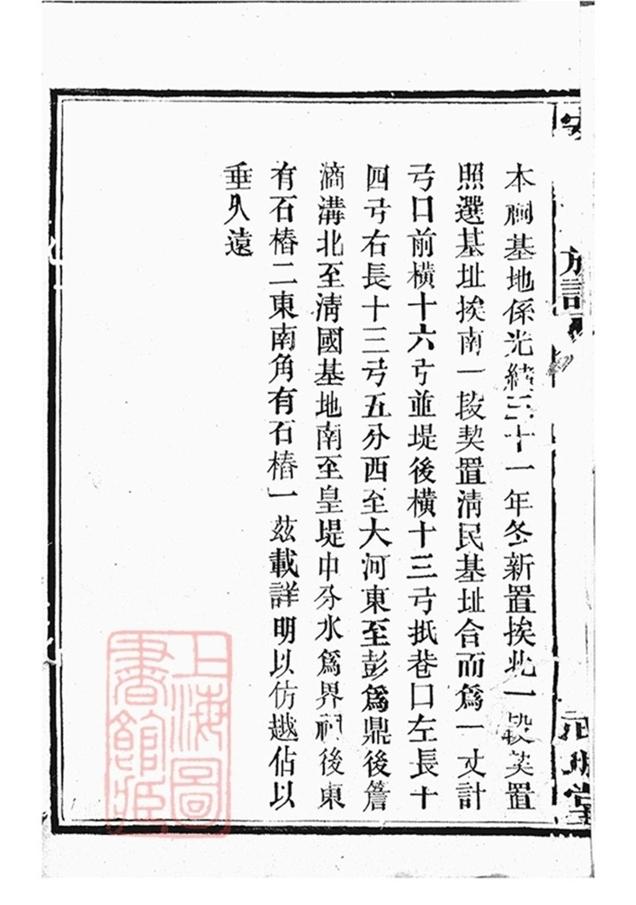 本祠基地係光緒三十一年冬新置挨北一段契置
照選基址挨南一段契置淸民基址合而爲一丈計
弓口前橫十六弓並堤後橫十三弓抵巷口左長十
四弓右長十三弓五分西至大河東至彭爲鼎後簷
滴溝北至淸國基地南至皇堤中分水爲界祠後東
有石樁二東南角有石樁一茲載詳明以仿越佔以
垂久遠
族譜
堂
上海圖
書館藏